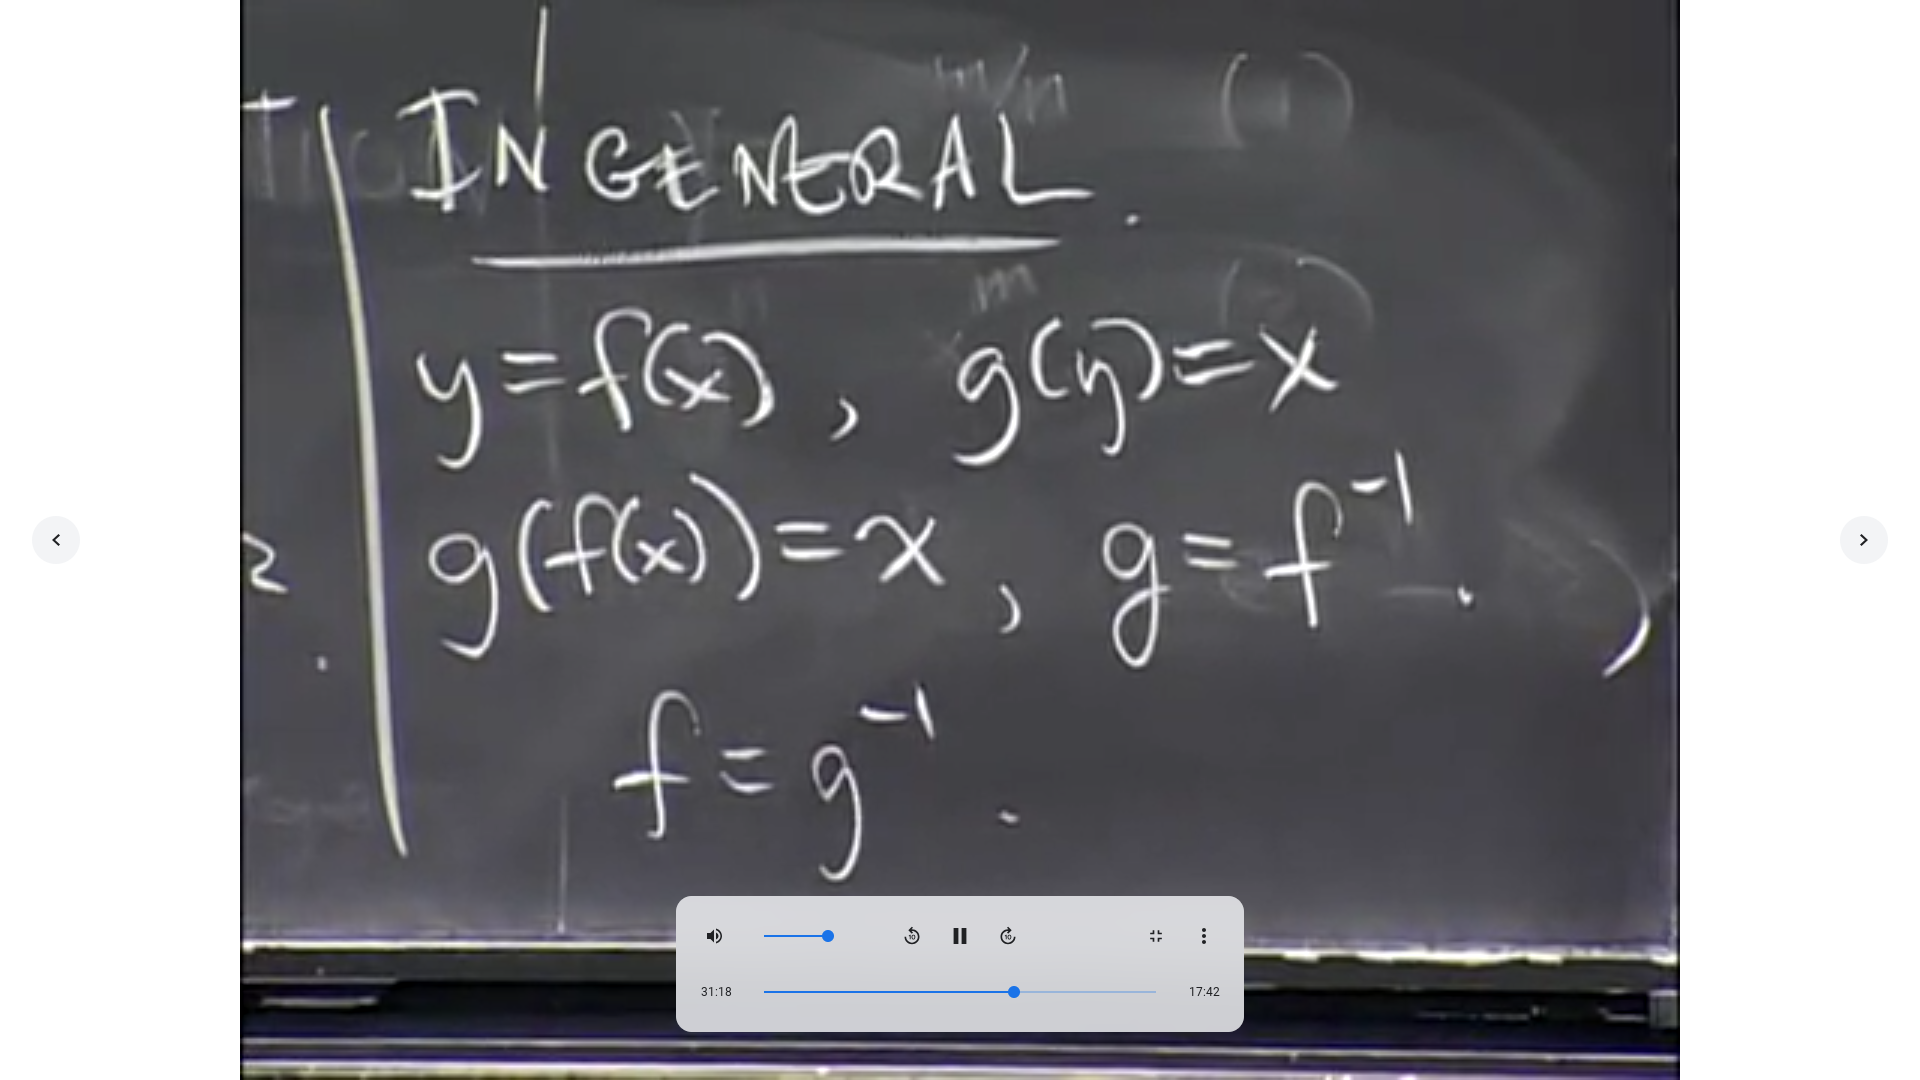 IN GENERAL.
y=f(x), g(y)=x
g(f(x))=x, g=f⁻¹.
f=g⁻¹.
2
m/n
(1)
m
31:18
17:42